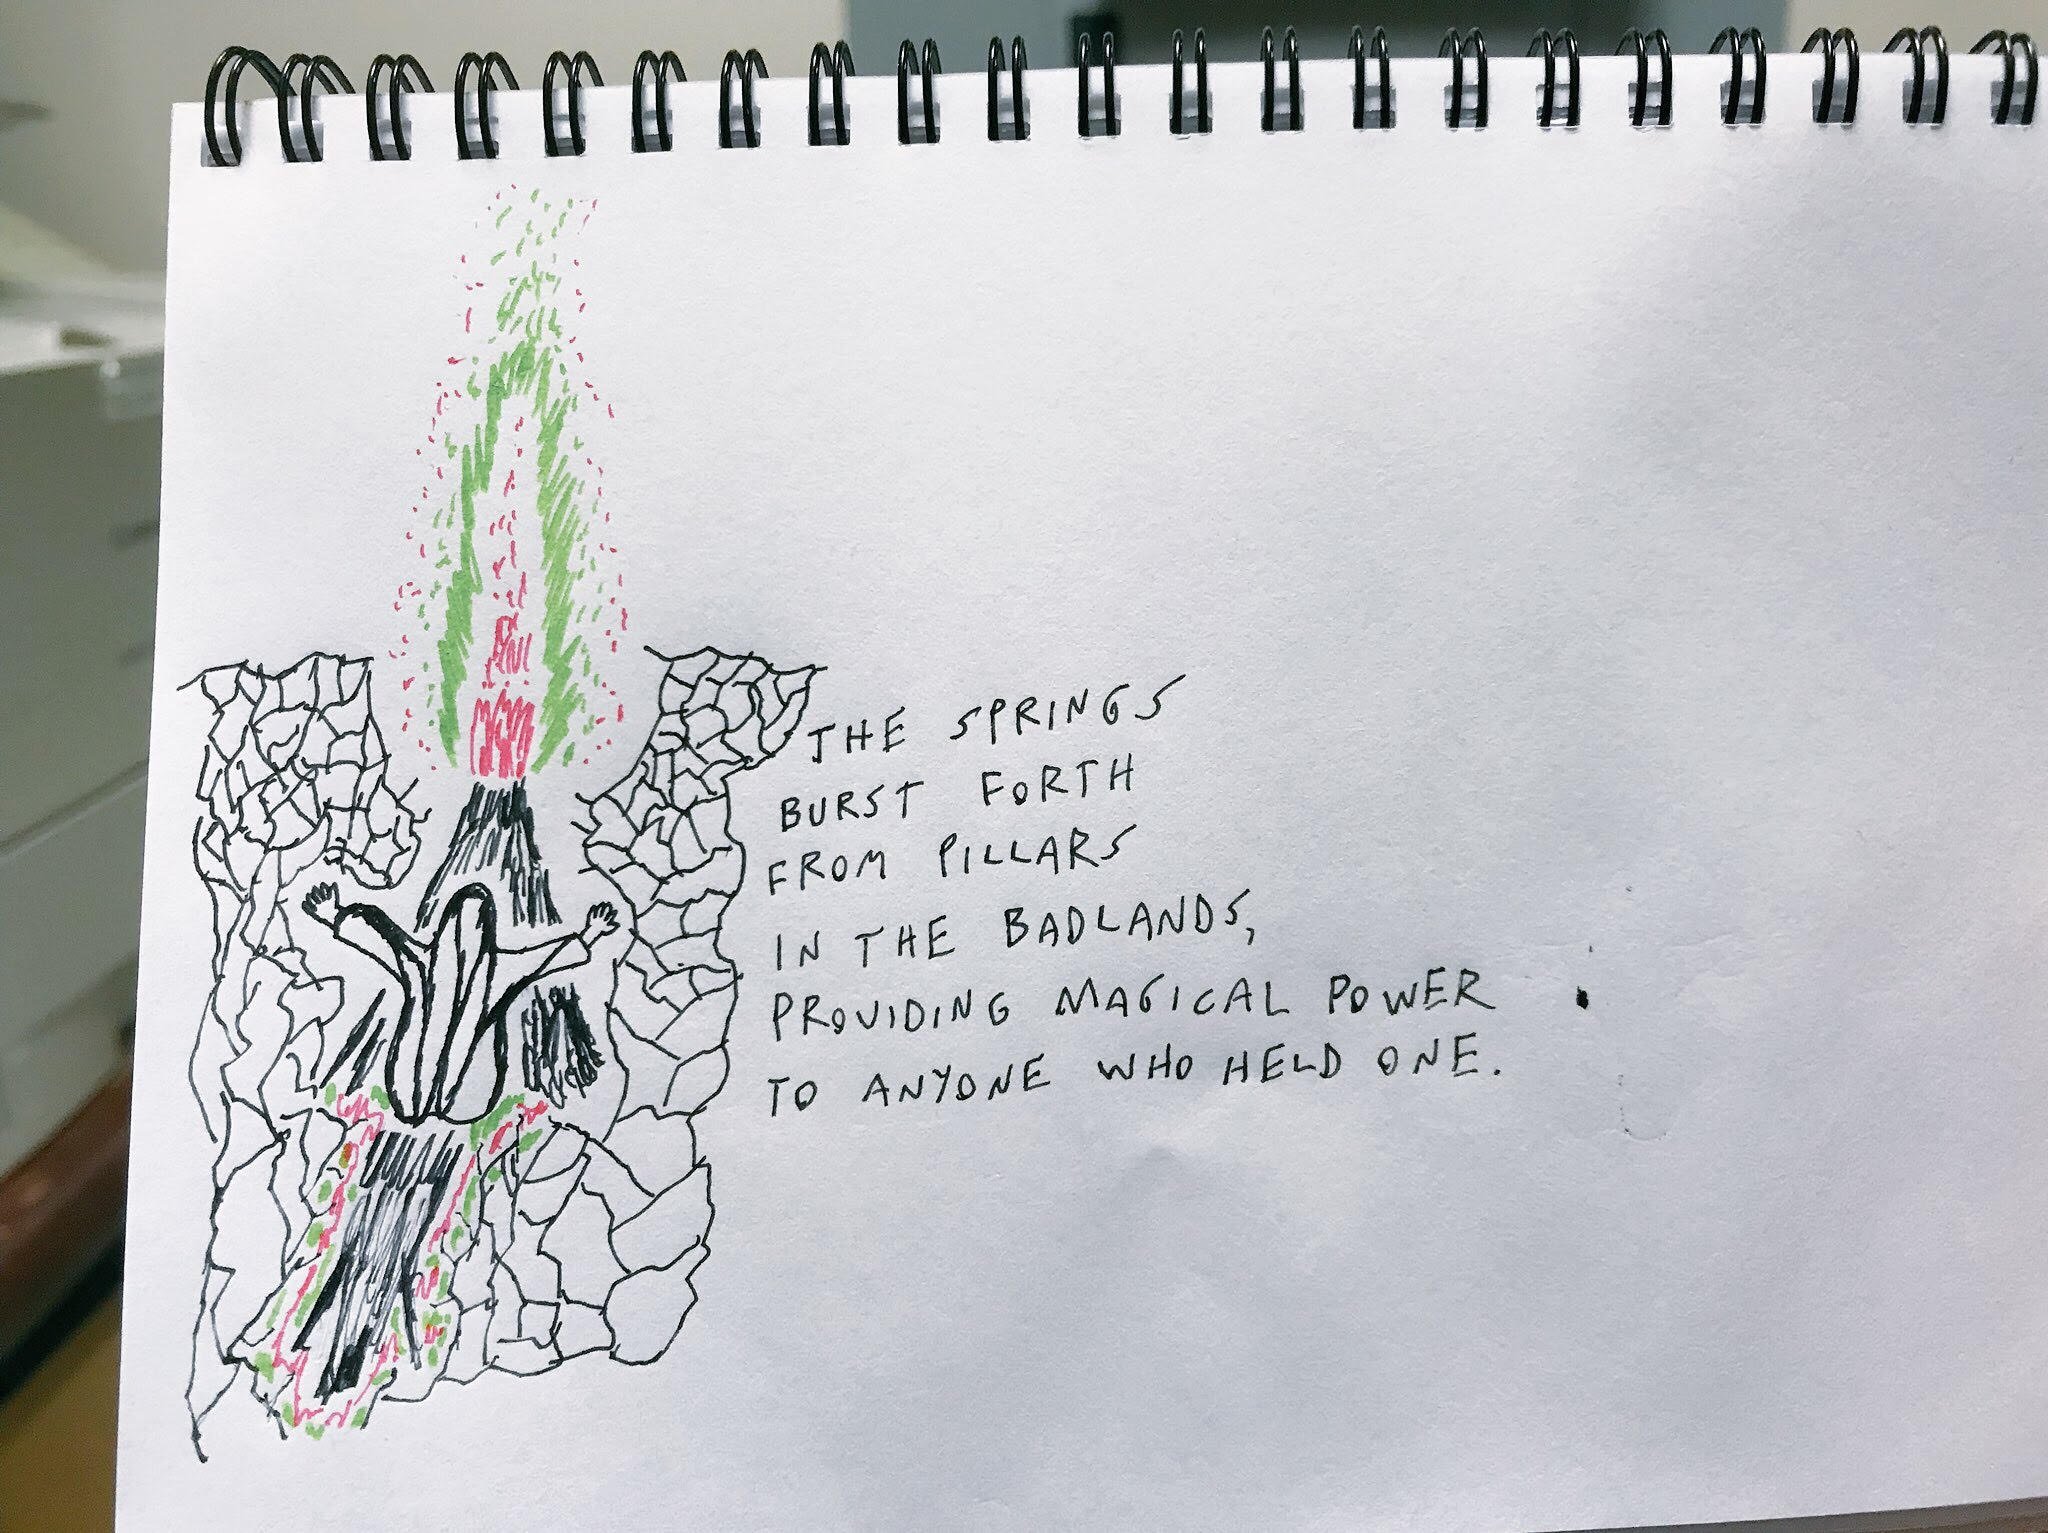 THE SPRINGS
BURST FORTH
FROM PILLARS
IN THE BADLANDS,
PROVIDING MAGICAL POWER
TO ANYONE WHO HELD ONE.